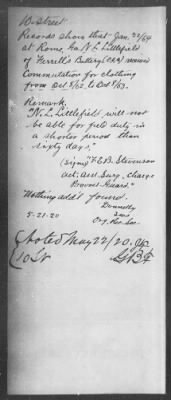 D-Street.
Records show that Jan. 22/64
at Rome, Ga. N. L. Littlefield
of Ferrell's Battery (CSA) received
Commutation for clothing
from Oct. 8/62 to Oct 8/63.
Remark.
"N. L. Littlefield will not
be able for field duty in
a shorter period than
sixty days."
(Signed) F. E. B. Stevenson
Act. Asst. Surg. Charge
Provost Guard."
Nothing add'l found.
Donnelly
5-21-20
Org. Rec. Sec.
Noted May 22/20.